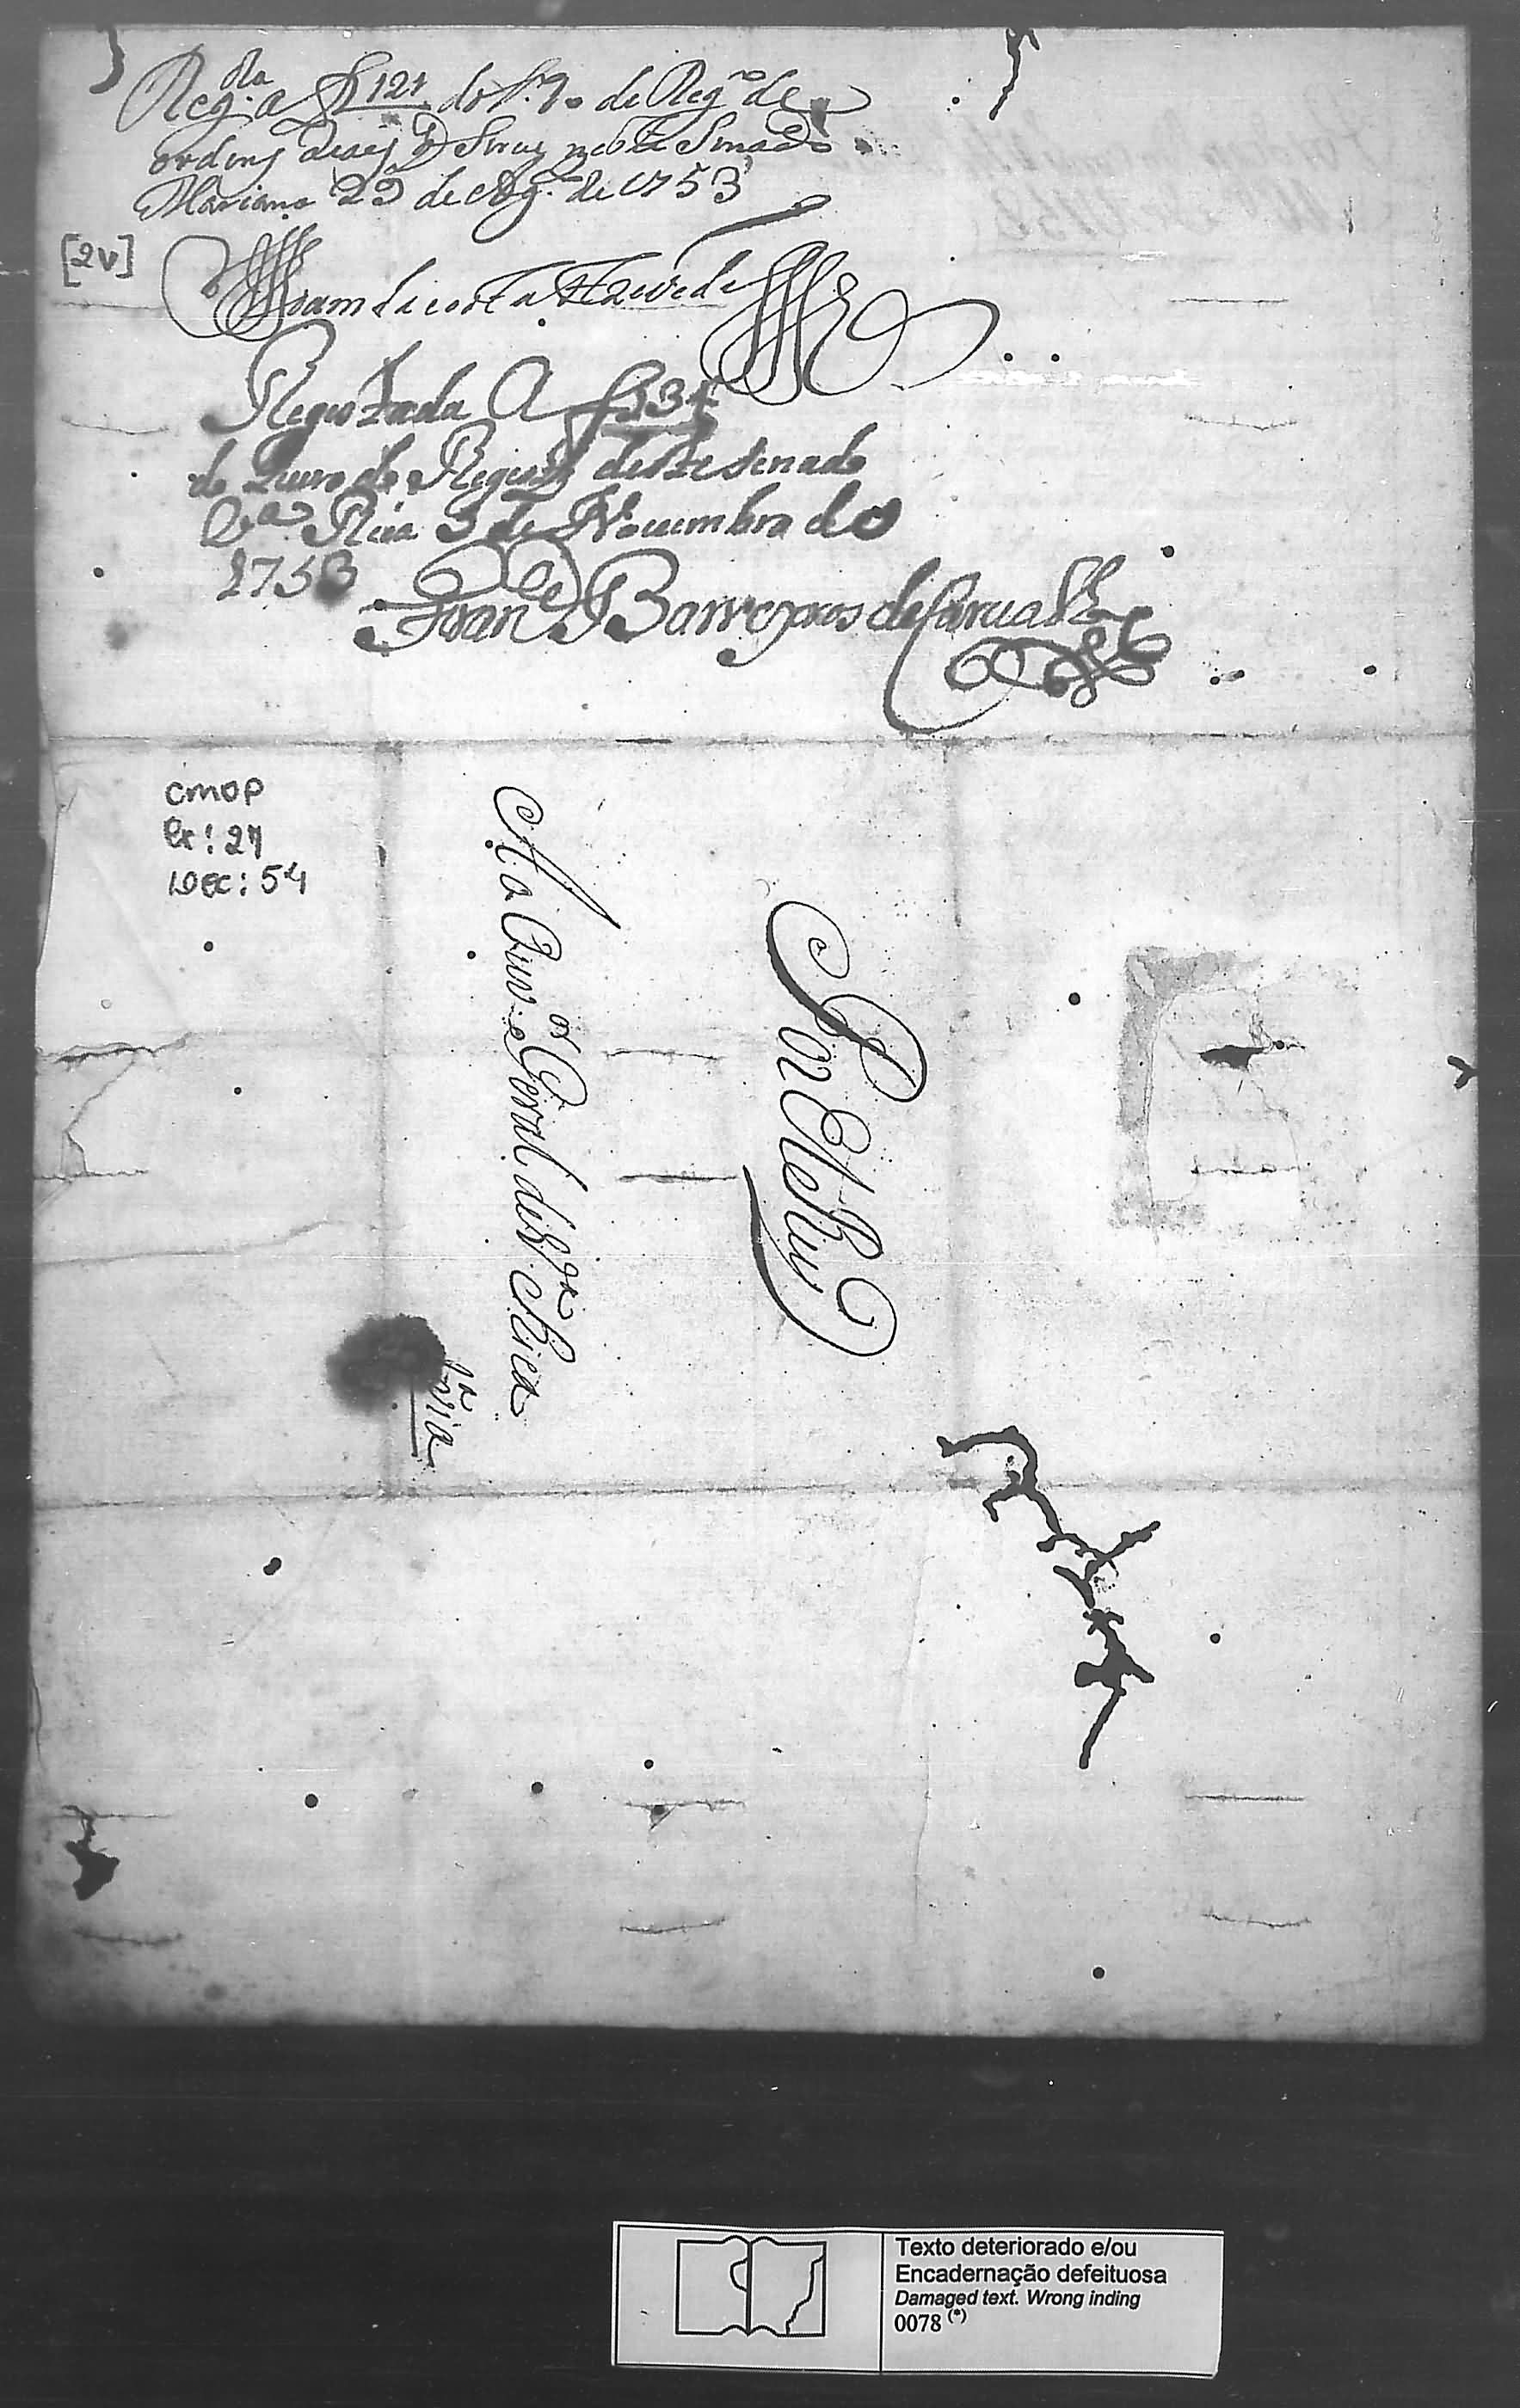 Reg.da a f 121 do L.º 9º de Reg.ro de
ordens Reaes q̃ Serve neste Senado
Mariana 29 de Ag.to de 1753
[2v]
Fram da costa Azevedo
Registada A f 134
do Livro de Registo deste senado
V.ª Rica 3 de Novembro de
1753
Fran.co Barreyros de Carvalho
CMOP
Cx: 27
DOC: 54
Por El Rey
Ao Ouv.or Geral de V.ª Rica
1ª via
Texto deteriorado e/ou
Encadernação defeituosa
Damaged text. Wrong inding
0078 (*)